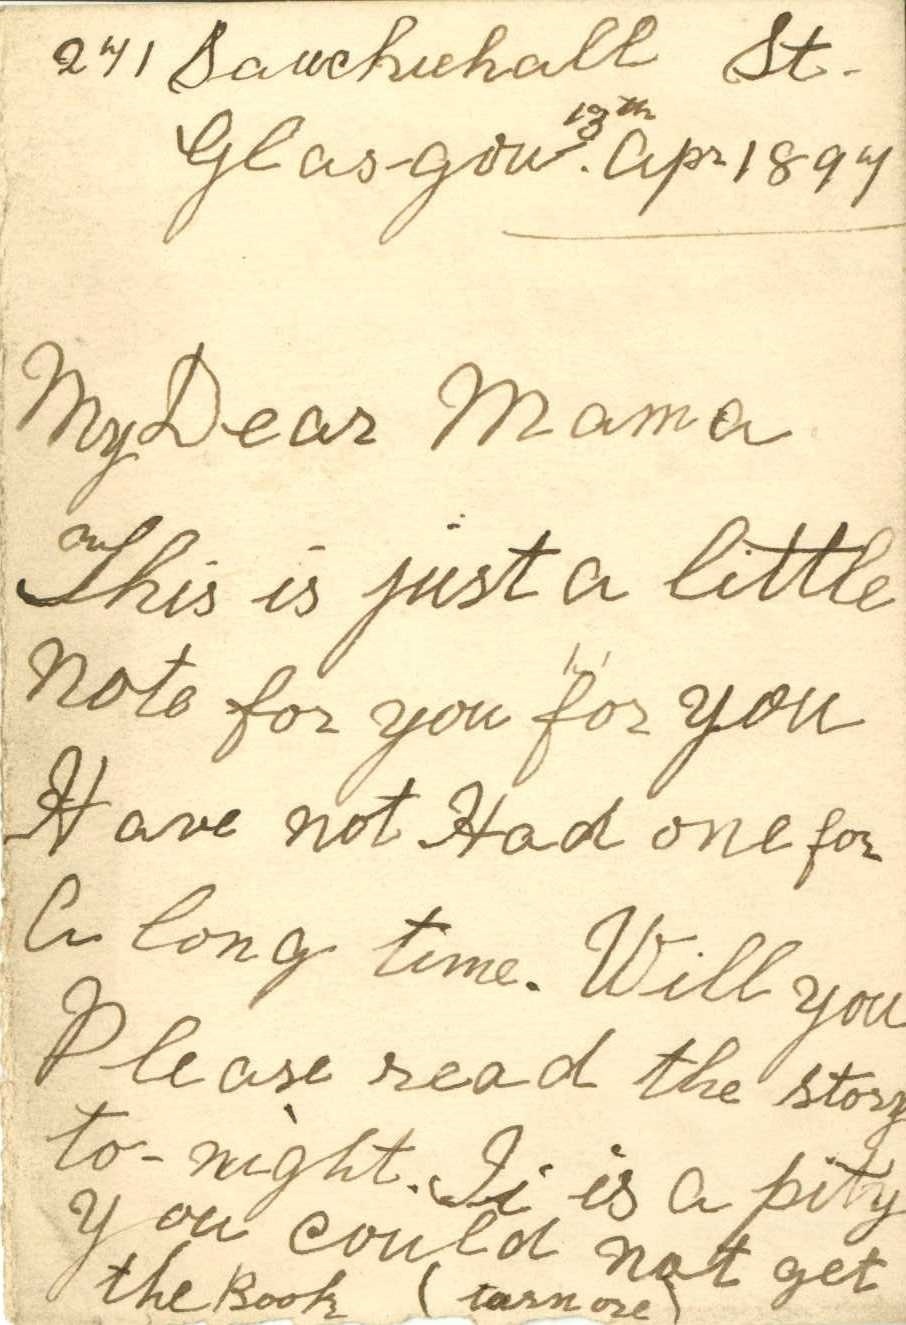 271 Sauchiehall St.
Glas-gow. 13th Apr 1897
My Dear Mama
This is just a little
Note for you for you
Have not Had one for
a long time. Will you
Please read the story
to-night. Ii is a pity
you could not get
the Book (turn ore)